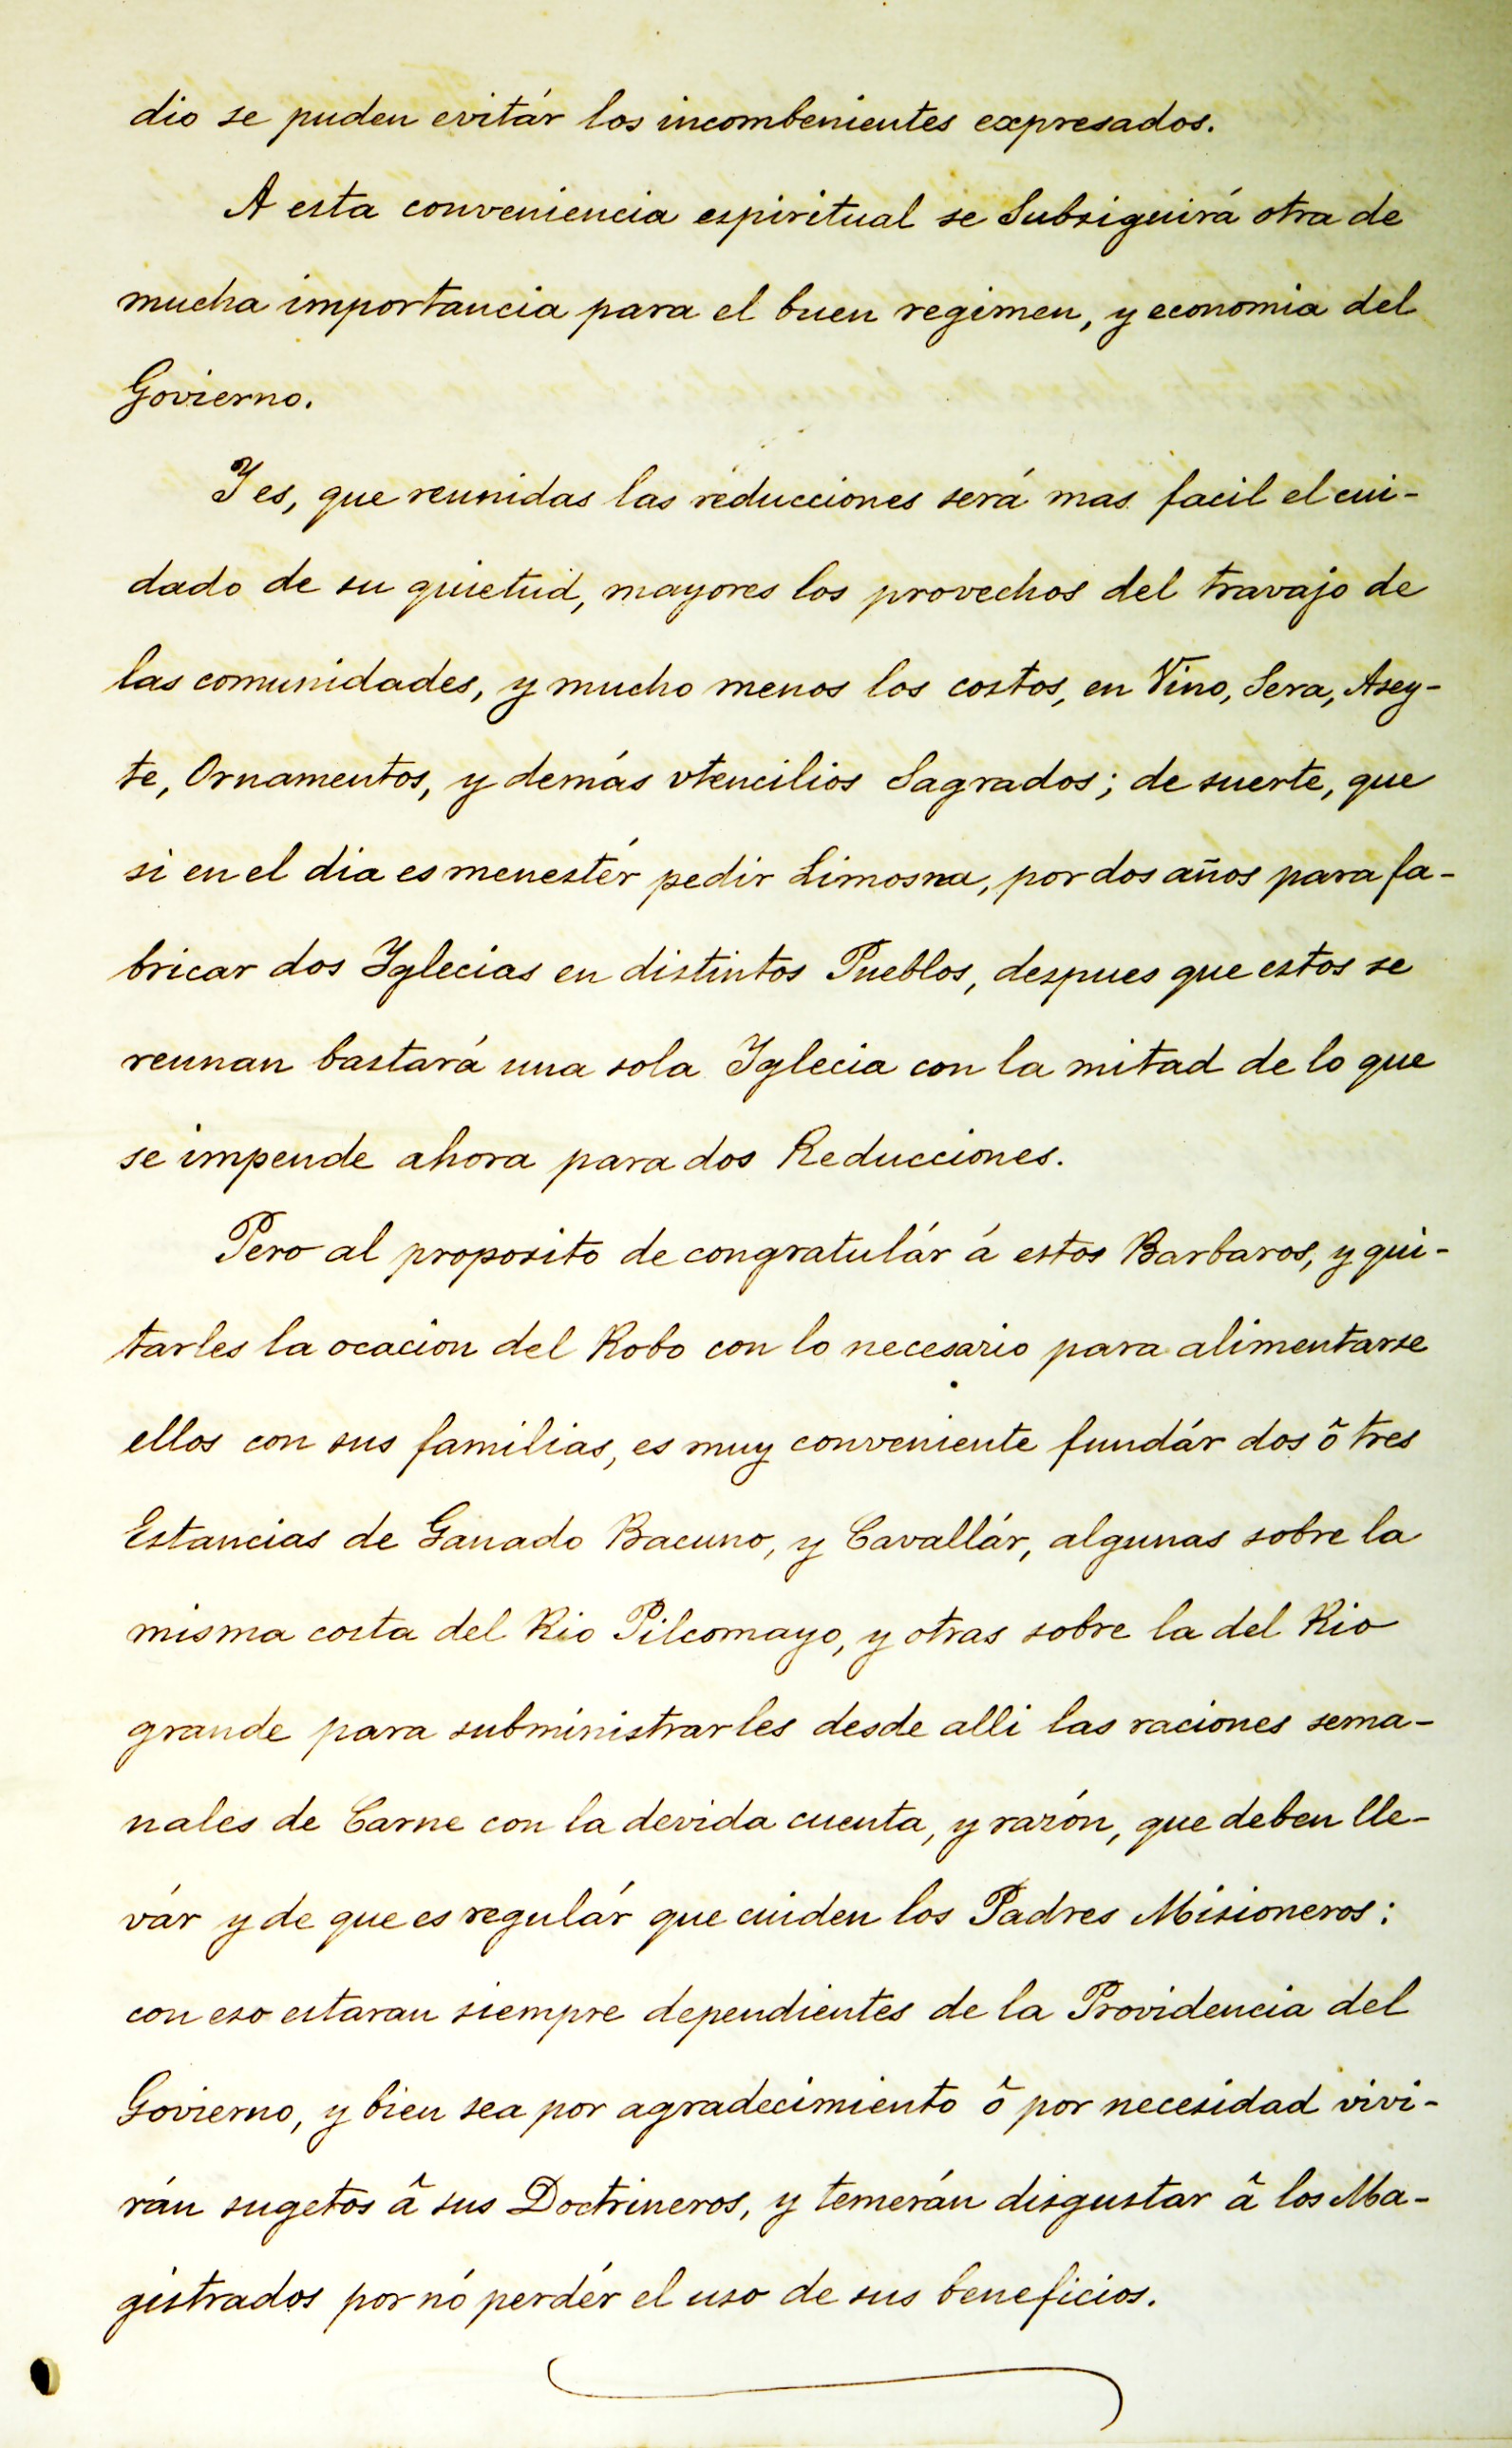 dio se puden evitár los incombenientes expresados.
A esta conveniencia espiritual se Subsiguirá otra de
mucha importancia para el buen regimen, y economia del
Govierno.
Y es, que reunidas las reducciones será mas facil el cui-
dado de su quietud, mayores los provechos del travajo de
las comunidades, y mucho menos los costos, en Vino, Sera, Asey-
te, Ornamentos, y demás vtencilios Sagrados; de suerte, que
si en el dia es menestér pedir Limosna, por dos años para fa-
bricar dos Yglecias en distintos Pueblos, despues que estos se
reunan bastará una sola Yglecia con la mitad de lo que
se impende ahora para dos Reducciones.
Pero al proposito de congratulár á estos Barbaros, y qui-
tarles la ocacion del Robo con lo necesario para alimentarse
ellos con sus familias, es muy conveniente fundár dos õ tres
Estancias de Ganado Bacuno, y Cavallár, algunas sobre la
misma costa del Rio Pilcomayo, y otras sobre la del Rio
grande para subministrarles desde alli las raciones sema-
nales de Carne con la devida cuenta, y razón, que deben lle-
vár y de que es regulár que cuiden los Padres Misioneros:
con eso estaran siempre dependientes de la Providencia del
Govierno, y bien sea por agradecimiento õ por necesidad vivi-
rán sugetos â sus Doctrineros, y temerán disgustar â los Ma-
gistrados por nó perdér el uso de sus beneficios.